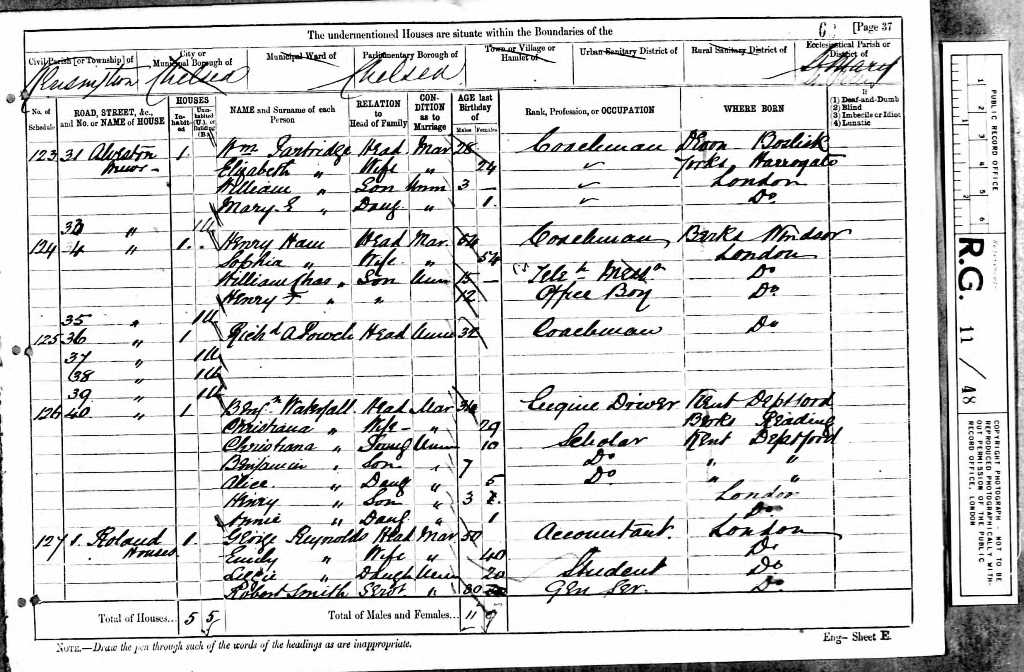 The undermentioned Houses are situate within the Boundaries of the
6 [Page 37
Civil Parish [or Township] of
City or Municipal Borough of
Municipal Ward of
Parliamentary Borough of
Town or Village or Hamlet of
Urban Sanitary District of
Rural Sanitary District of
Ecclesiastical Parish or District of
Kensington Chelsea Chelsea St Marys
No. of Schedule
ROAD, STREET, &c., and No. or NAME of HOUSE
HOUSES
In-habit-ed
Unin-habited (U.), or Building (B.)
NAME and Surname of each Person
RELATION to Head of Family
CON-DITION as to Marriage
AGE last Birthday of
Males Females
Rank, Profession, or OCCUPATION
WHERE BORN
If
(1) Deaf-and-Dumb
(2) Blind
(3) Imbecile or Idiot
(4) Lunatic
123 31 1 Wm Partridge Head Mar 28 Coachman Devon
Mews Elizabeth " Wife " 24 Yorks Harrogate
William " Son Unm 3 London
Mary E " Daug " 1 Do
33 " 1U
124 34 " 1 Henry Ham Head Mar 54 Coachman Berks Windsor
Sophia " Wife " 54 London
William Chas " Son Unm 15 Tele h Mess r Do
Henry F " " 12 Office Boy Do
35 " 1U
125 36 " 1 Richd A Powell Head Unm 32 Coachman Do
37 " 1U
38 " 1U
39 " 1U
126 40 " 1 Benjn Waterfall Head Mar 36 Engine Driver Kent Deptford
Christiana " Wife " 29 Berks Reading
Christiana " Daug Unm 10 Scholar Kent Deptford
Benjamin " Son " 7 Do " "
Alice " Daug " 5 Do " "
Henry " Son " 3 London
Annie " Daug " 1 Do
127 1 Roland Houses 1 George Reynolds Head Mar 50 Accountant London
Emily " Wife " 40 Do
Lillie " Daugh Unm 20 Student Do
Robert Smith Servt " 30 Gen Ser. Do
Total of Houses... 5 5
Total of Males and Females... 11 9
NOTE.—Draw the pen through such of the words of the headings as are inappropriate.
Eng— Sheet E.
PUBLIC RECORD OFFICE
1 2 3 4 5 6
R.G. 11/48
COPYRIGHT PHOTOGRAPH - NOT TO BE REPRODUCED PHOTOGRAPHICALLY WITHOUT PERMISSION OF THE PUBLIC RECORD OFFICE, LONDON